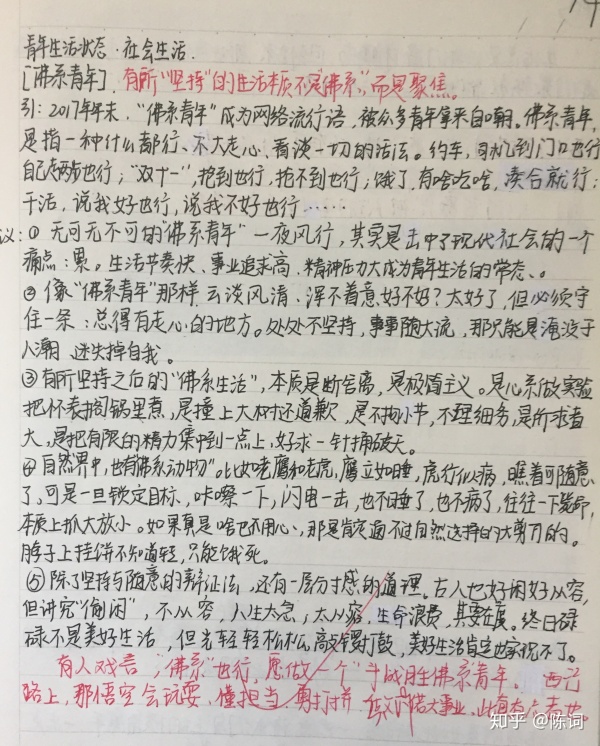 青年生活状态·社会生活.
[佛系青年].有所"坚持"的生活本质不是"佛系",而是聚焦。
引:2017年年末,"佛系青年"成为网络流行语,被众多青年拿来自嘲。佛系青年,
是指一种什么都行、不大走心、看淡一切的活法。约车,司机到门口也行
自己走两步也行;"双十一",抢到也行,抢不到也行;饿了,有啥吃啥,凑合就行;
干活,说我好也行,说我不好也行……
议:①无可无不可的"佛系青年"一夜风行,其实是击中了现代社会的一个
痛点:累。生活节奏快、事业追求高、精神压力大成为青年生活的常态、。
②像"佛系青年"那样云淡风清、浑不着意,好不好?太好了,但必须守
住一条:总得有走心的地方。处处不坚持,事事随大流,那只能是淹没于
人潮、迷失掉自我。
③有所坚持之后的"佛系生活",本质是断舍离,是极简主义。是心系做实验
把怀表搁锅里煮,是撞上大树还道歉,是不拘小节,不理细务,是所求者
大,是把有限的精力集中到一点上,好求一针捅破天。
④自然界中,也有"佛系动物"。比如老鹰和老虎,鹰立如睡,虎行似病,瞧着可随意
了,可是一旦锁定目标,咔嚓一下,闪电一去,也不睡了,也不病了,往往一下毙命,
本质上抓大放小。如果真是啥也不用心,那是肯定通不过自然选择的大剪刀的。
脖子上挂饼不知道转,只能饿死。
⑤除了坚持与随意的辩证法,还有一层分寸感的道理。古人也好闲好从容,
但讲究"偷闲",不从容,人生太急,太从容,生命浪费,其要在度。终日碌
碌不是美好生活,但光轻轻松松,敲锣打鼓,美好生活肯定也实现不了。
有人戏言,"佛系"也行,愿做一个"斗战胜佛系青年。西行
路上,那悟空会玩耍、懂担当、勇打拼,
知乎 @陈词